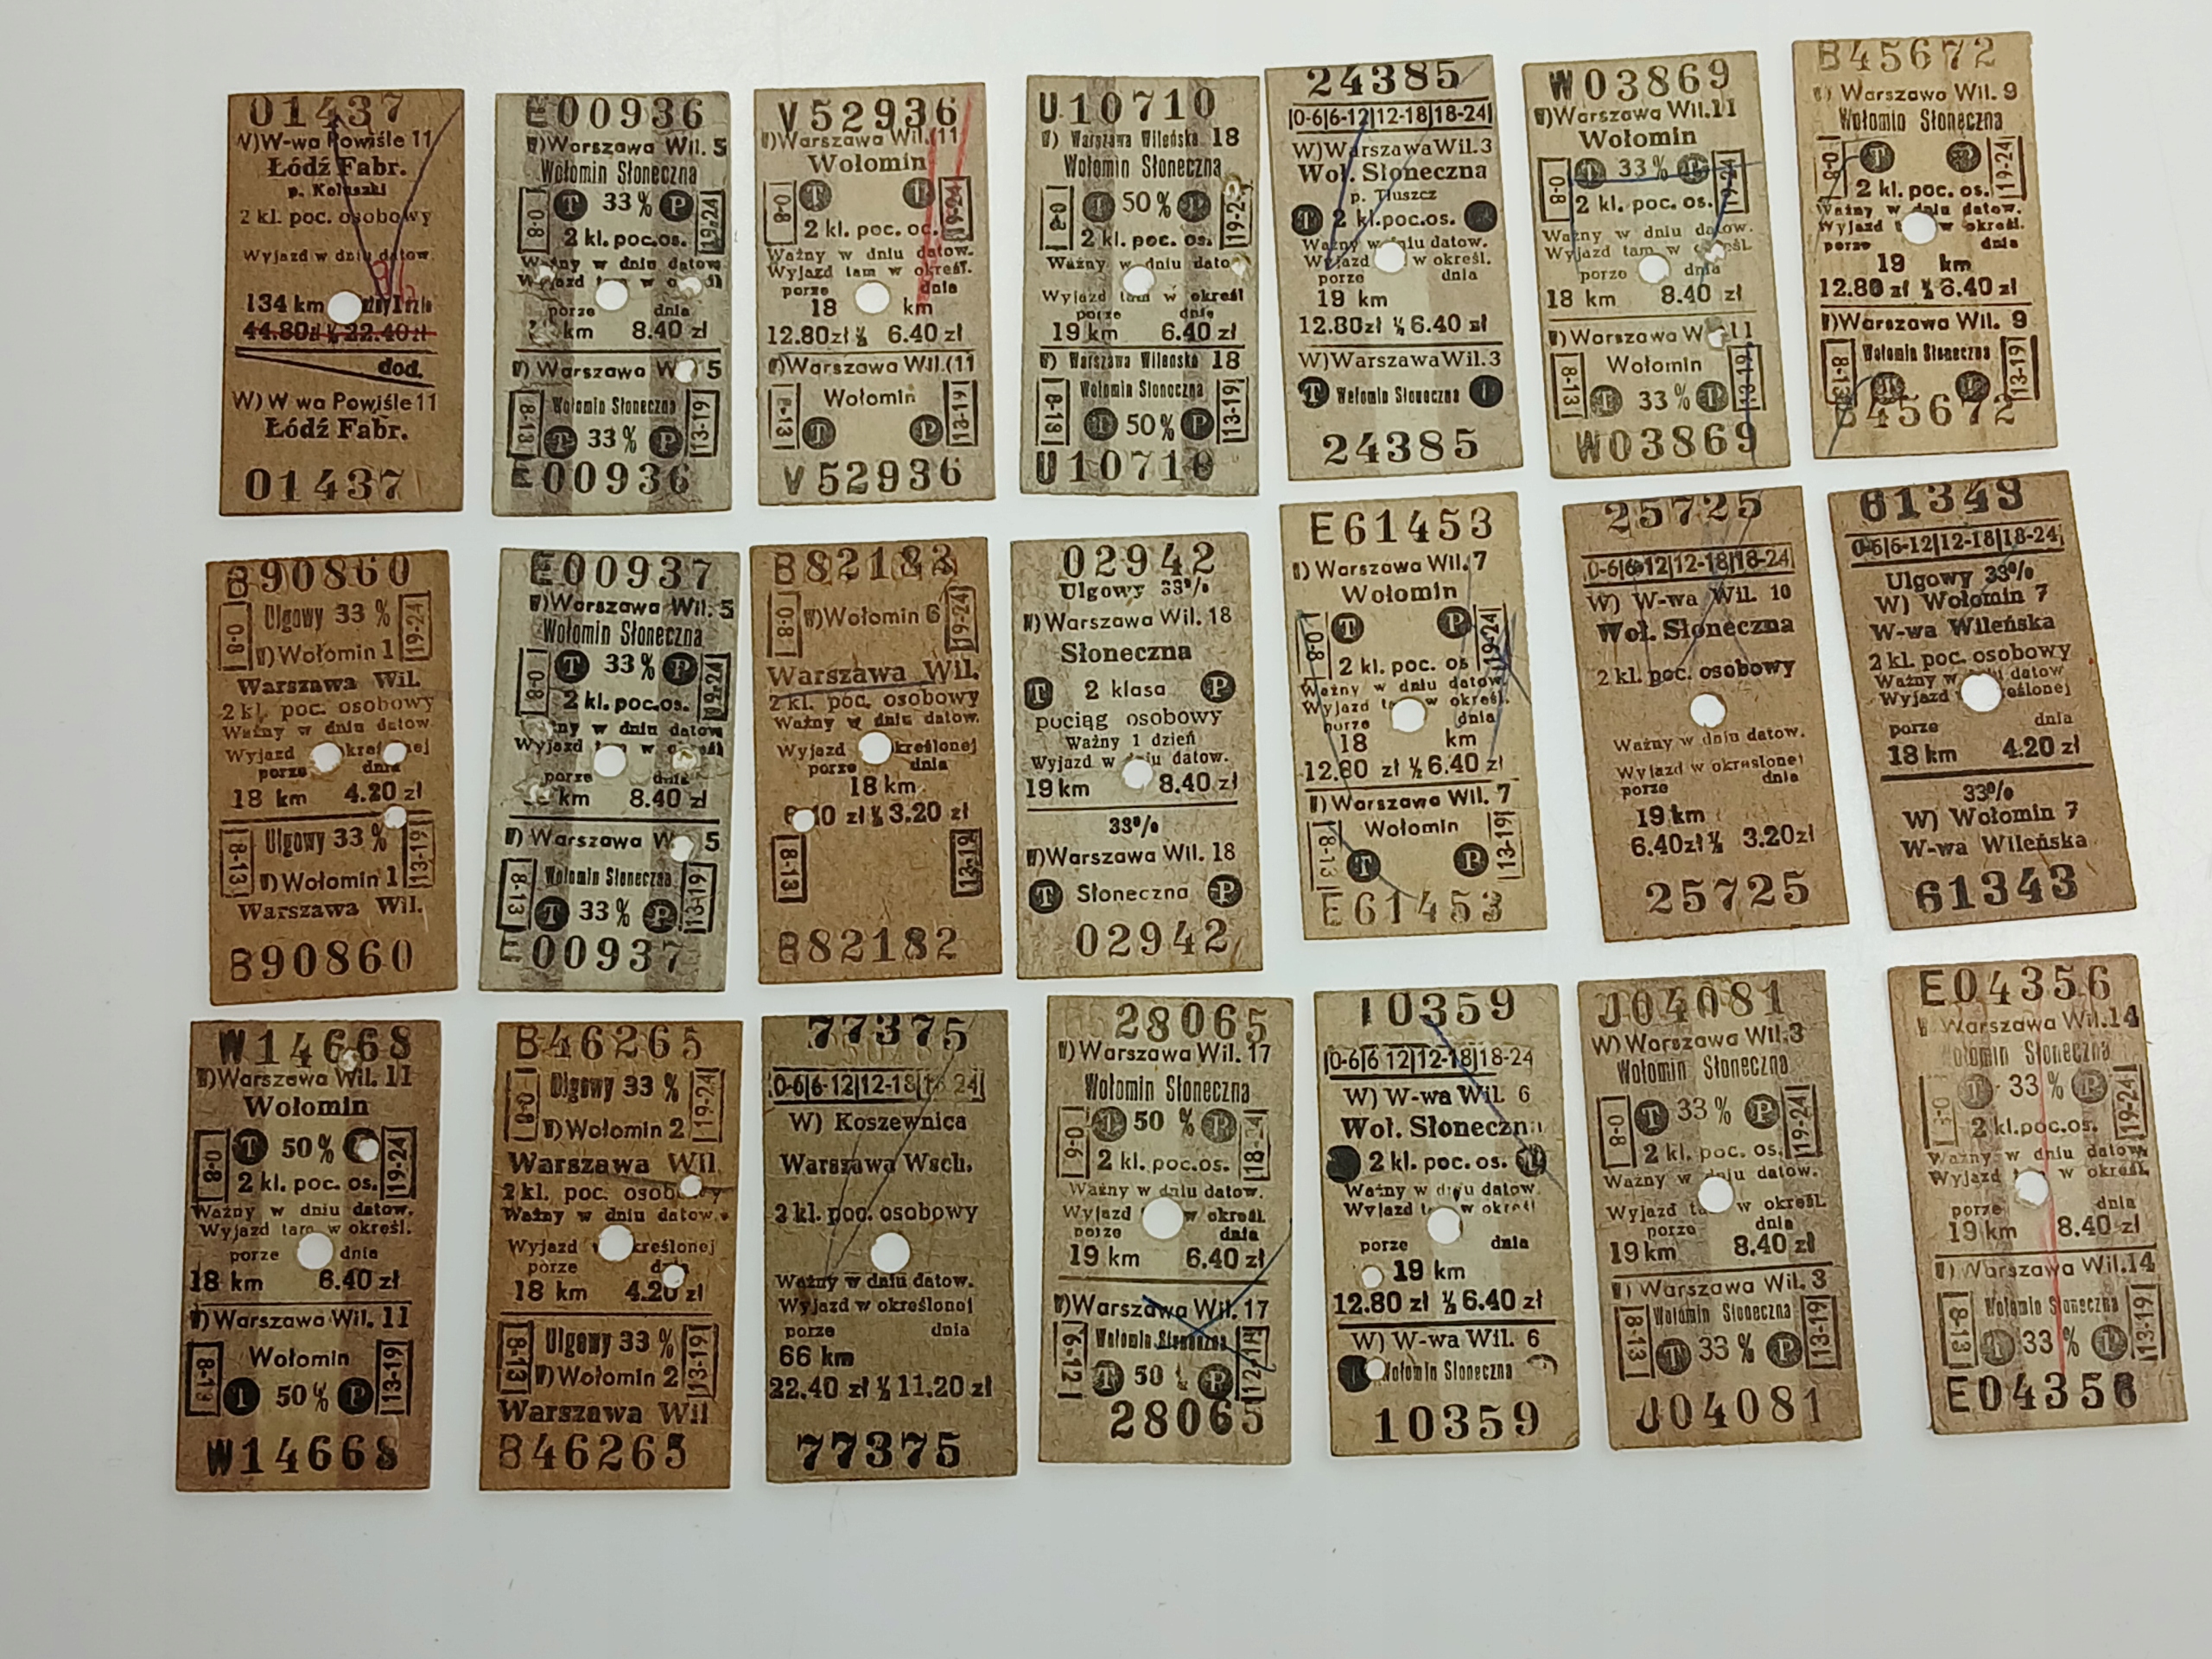 01437
W) W-wa Powiśle 11
Łódź Fabr.
p. Koluszki
2 kl. poc. osobowy
Wyjazd w dniu datow.
134 km
44.80zł ½ 22.40zł
dod.
W) W wa Powiśle 11
Łódź Fabr.
01437
E00936
W) Warszawa Wil. 5
Wołomin Słoneczna
T 33% P
0-8 19-24
2 kl. poc. os.
Ważny w dniu datow
Wyjazd tam w
porze dnia
km 8.40 zł
W) Warszawa W 5
Wołomin Słoneczna
8-13 13-19
T 33% P
E00936
V52936
W) Warszawa Wil. (11
Wołomin
0-8 T T 19-24
2 kl. poc. oc.
Ważny w dniu datow.
Wyjazd tam w określ.
porze dnia
18 km
12.80zł ½ 6.40 zł
W) Warszawa Wil. (11
Wołomin
8-13 T P 13-19
V52936
U10710
W) Warszawa Wileńska 18
Wołomin Słoneczna
0-8 T 50% P 19-24
2 kl. poc. os.
Ważny w dniu dato
Wyjazd tam w określ
porze dnia
19 km 6.40 zł
W) Warszawa Wileńska 18
Wołomin Słoneczna
8-13 T 50% P 13-19
U10710
24385
0-6|6-12|12-18|18-24
W) Warszawa Wil. 3
Woł. Słoneczna
p. Tłuszcz
T 2 kl. poc. os.
Ważny w dniu datow.
Wyjazd w określ.
porze dnia
19 km
12.80zł ½ 6.40 zł
W) Warszawa Wil. 3
T Wołomin Słoneczna
24385
W03869
W) Warszawa Wil. 11
Wołomin
0-8 T 33% P 19-24
2 kl. poc. os.
Ważny w dniu datow.
Wyjazd tam w określ.
porze dnia
18 km 8.40 zł
W) Warszawa W 11
Wołomin
8-13 T 33% P 13-19
W03869
B45672
W) Warszawa Wil. 9
Wołomin Słoneczna
0-8 T 19-24
2 kl. poc. os.
Ważny w dniu datow.
Wyjazd w określ.
porze dnia
19 km
12.80 zł ½ 6.40 zł
W) Warszawa Wil. 9
Wołomin Słoneczna
8-13 13-19
B45672
B90860
0-8 Ulgowy 33% 19-24
W) Wołomin 1
Warszawa Wil.
2 kl. poc. osobowy
Ważny w dniu datow.
Wyjazd określonej
porze dnia
18 km 4.20 zł
8-13 Ulgowy 33% 13-19
W) Wołomin 1
Warszawa Wil.
B90860
E00937
W) Warszawa Wil. 5
Wołomin Słoneczna
0-8 T 33% P 19-24
2 kl. poc. os.
w dniu datow
Wyjazd tam w
porze dnia
km 8.40 zł
W) Warszawa W 5
Wołomin Słoneczna
8-13 T 33% P 13-19
E00937
B82182
0-8 W) Wołomin 6 19-24
Warszawa Wil.
2 kl. poc. osobowy
Ważny w dniu datow.
Wyjazd określonej
porze dnia
18 km
6.40 zł ½ 3.20 zł
8-13 13-19
B82182
02942
Ulgowy 33%
W) Warszawa Wil. 18
Słoneczna
T 2 klasa P
pociąg osobowy
Ważny 1 dzień
Wyjazd w dniu datow.
19 km 8.40 zł
33%
W) Warszawa Wil. 18
T Słoneczna P
02942
E61453
W) Warszawa Wil. 7
Wołomin
0-8 T P 19-24
2 kl. poc. os
Ważny w dniu datow.
Wyjazd w określ.
porze dnia
18 km
12.80 zł ½ 6.40 zł
W) Warszawa Wil. 7
Wołomin
8-13 T P 13-19
E61453
25725
0-6|6-12|12-18|18-24
W) W-wa Wil. 10
Woł. Słoneczna
2 kl. poc. osobowy
Ważny w dniu datow.
Wyjazd w określonej
porze dnia
19 km
6.40zł ½ 3.20zł
25725
61343
0-6|6-12|12-18|18-24
Ulgowy 33%
W) Wołomin 7
W-wa Wileńska
2 kl. poc. osobowy
Ważny w dniu datow
Wyjazd określonej
porze dnia
18 km 4.20 zł
33%
W) Wołomin 7
W-wa Wileńska
61343
W14668
W) Warszawa Wil. 11
Wołomin
0-8 T 50% 19-24
2 kl. poc. os.
Ważny w dniu datow.
Wyjazd tam w określ.
porze dnia
18 km 6.40 zł
W) Warszawa Wil. 11
Wołomin
8-13 T 50% P 13-19
W14668
B46265
0-8 Ulgowy 33% 19-24
W) Wołomin 2
Warszawa Wil
2 kl. poc. osobowy
Ważny w dniu datow.
Wyjazd określonej
porze
18 km 4.20 zł
8-13 Ulgowy 33% 13-19
W) Wołomin 2
Warszawa Wil
B46265
77375
0-6|6-12|12-18|18-24
W) Koszewnica
Warszawa Wsch.
2 kl. poc. osobowy
Ważny w dniu datow.
Wyjazd w określonej
porze dnia
66 km
22.40 zł ½ 11.20 zł
77375
28065
W) Warszawa Wil. 17
Wołomin Słoneczna
0-6 T 50% P 18-24
2 kl. poc. os.
Ważny w dniu datow.
Wyjazd w określ.
porze dnia
19 km 6.40 zł
W) Warszawa Wil. 17
Wołomin Słoneczna
6-12 T 50 P 12-18
28065
10359
0-6|6 12|12-18|18-24
W) W-wa Wil. 6
Woł. Słoneczna
2 kl. poc. os.
Ważny w dniu datow.
Wyjazd w określ
porze dnia
19 km
12.80 zł ½ 6.40 zł
W) W-wa Wil. 6
Wołomin Słoneczna
10359
J04081
W) Warszawa Wil. 3
Wołomin Słoneczna
0-8 T 33% P 19-24
2 kl. poc. os.
Ważny w dniu datow.
Wyjazd w określ.
porze dnia
19 km 8.40 zł
W) Warszawa Wil. 3
Wołomin Słoneczna
8-13 T 33% P 13-19
J04081
E04356
W) Warszawa Wil. 14
Wołomin Słoneczna
T 33% P 19-24
2 kl. poc. os.
Ważny w dniu datow.
Wyjazd w określ.
porze dnia
19 km 8.40 zł
W) Warszawa Wil. 14
Wołomin Słoneczna
8-13 33% 13-19
E04356